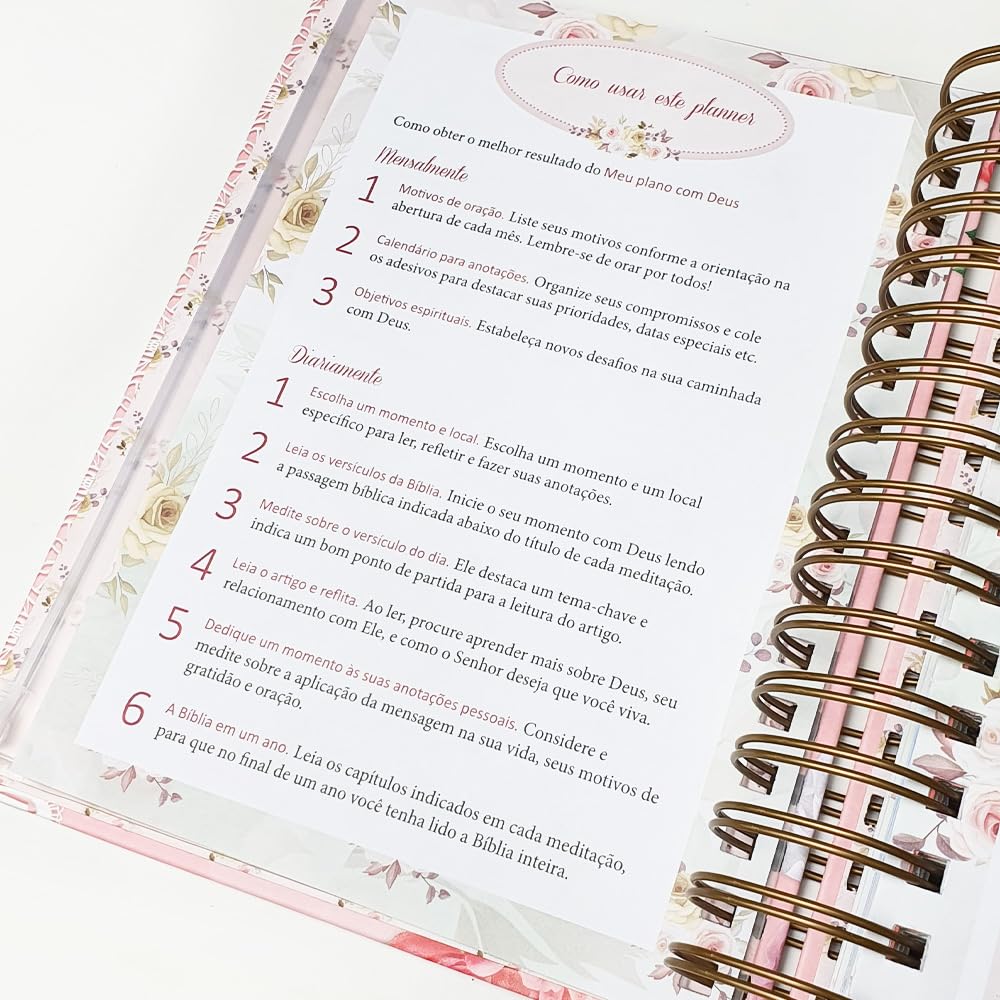 Como usar este planner
Como obter o melhor resultado do Meu plano com Deus
Mensalmente
1 Motivos de oração. Liste seus motivos conforme a orientação na
abertura de cada mês. Lembre-se de orar por todos!
2 Calendário para anotações. Organize seus compromissos e cole
os adesivos para destacar suas prioridades, datas especiais etc.
3 Objetivos espirituais. Estabeleça novos desafios na sua caminhada
com Deus.
Diariamente
1 Escolha um momento e local. Escolha um momento e um local
específico para ler, refletir e fazer suas anotações.
2 Leia os versículos da Bíblia. Inicie o seu momento com Deus lendo
a passagem bíblica indicada abaixo do título de cada meditação.
3 Medite sobre o versículo do dia. Ele destaca um tema-chave e
indica um bom ponto de partida para a leitura do artigo.
4 Leia o artigo e reflita. Ao ler, procure aprender mais sobre Deus, seu
relacionamento com Ele, e como o Senhor deseja que você viva.
5 Dedique um momento às suas anotações pessoais. Considere e
medite sobre a aplicação da mensagem na sua vida, seus motivos de
gratidão e oração.
6 A Bíblia em um ano. Leia os capítulos indicados em cada meditação,
para que no final de um ano você tenha lido a Bíblia inteira.